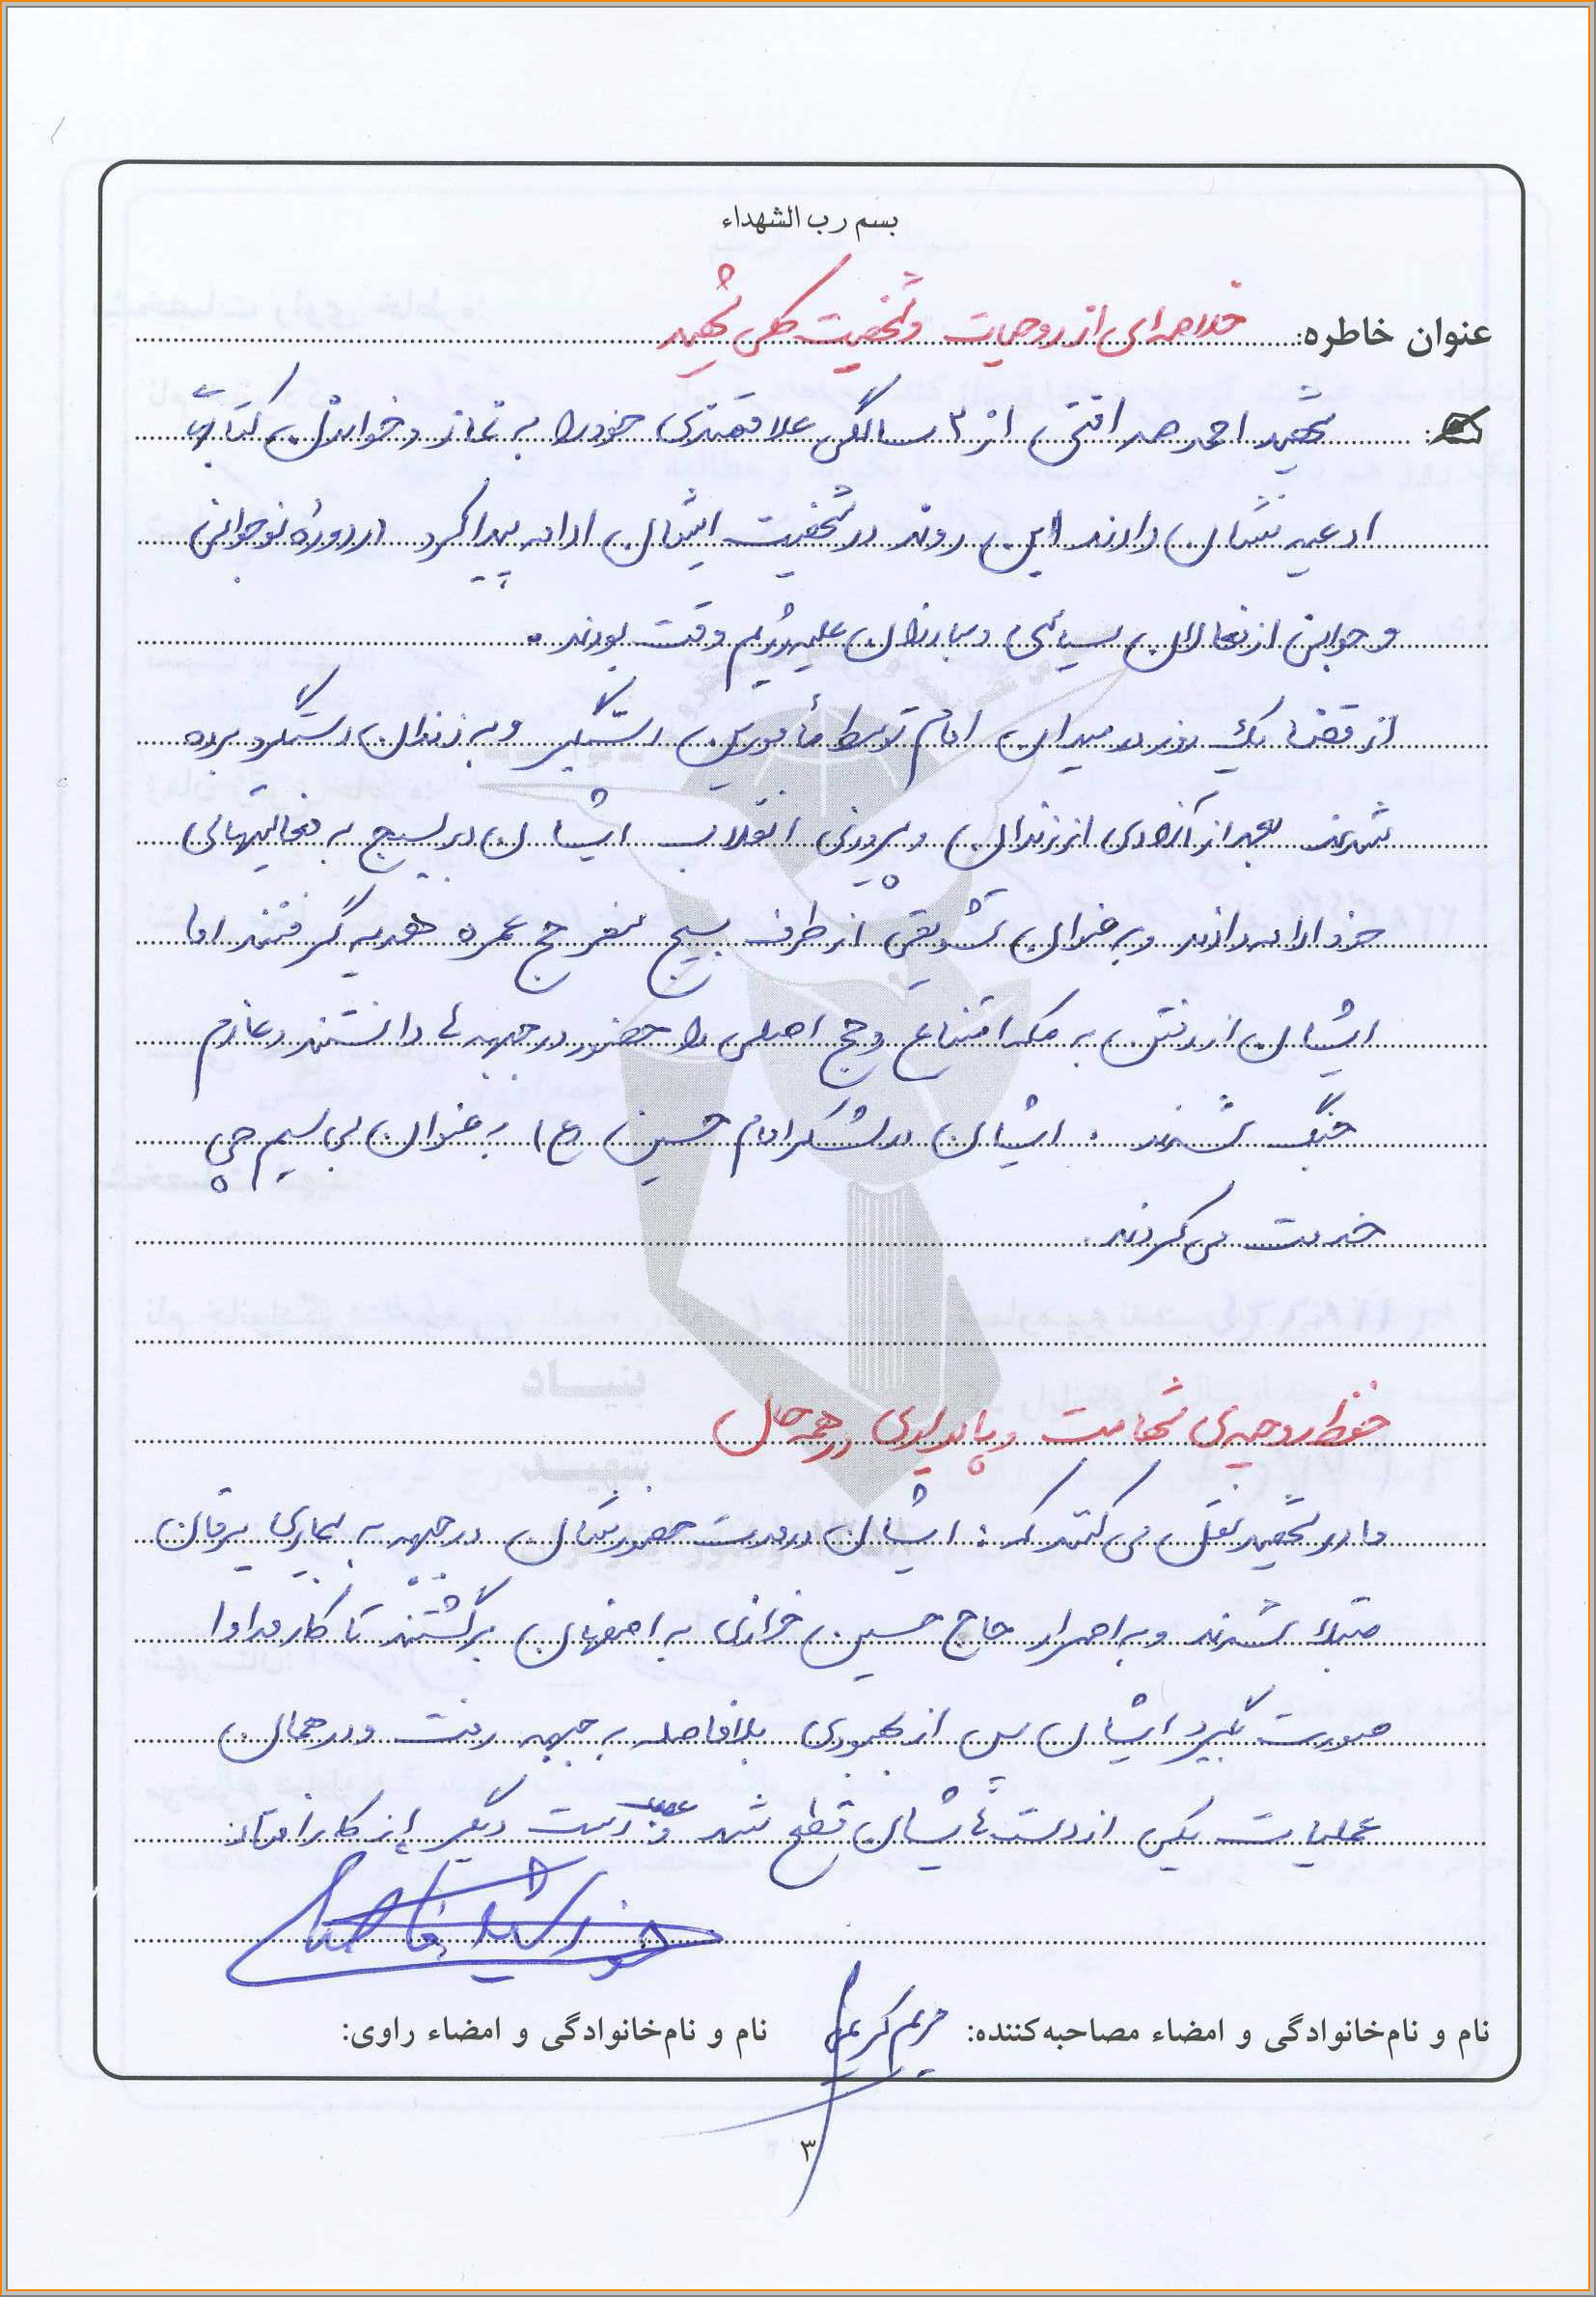 بسم رب الشهداء
عنوان خاطره: خلاصه ای از روحیات و شخصیت کلی شهید
شهید احمد صداقتی از ۳ سالگی علاقمندی خود را به نماز و خواندن کتاب
ادعیه نشان دادند این روند در شخصیت ایشان ادامه پیدا کرد در دوره نوجوانی
و جوانی از فعالان سیاسی و مبارزان علیه رژیم وقت بودند .
از قضا یک روز در میدان امام توسط مأمورین دستگیر و به زندان دستگرد برده
شدند بعد از آزادی از زندان و پیروزی انقلاب ایشان در بسیج به فعالیتهای
خود ادامه دادند و به عنوان تشویقی از طرف بسیج سفر حج عمره هدیه گرفتند اما
ایشان از رفتن به مکه امتناع و حج اصلی را حضور در جبهه ها دانستند و عازم
جنگ شدند . ایشان در لشکر امام حسین (ع) به عنوان بی سیم چی
خدمت می کردند.
حفظ روحیه ی شهامت و پایداری در همه حال
مادر شهید نقل می کنند که : ایشان در مدت حضورشان در جبهه به بیماری یرقان
مبتلا شدند و به اصرار حاج حسین خرازی به اصفهان برگشتند تا کار مداوا
صورت بگیرد ایشان پس از بهبودی بلافاصله به جبهه رفت و در همان
عملیات یکی از دست هایشان قطع شد و دست دیگر از کار افتاد
نام و نام‌خانوادگی و امضاء مصاحبه‌کننده: مریم کریمی نام و نام‌خانوادگی و امضاء راوی:
۳